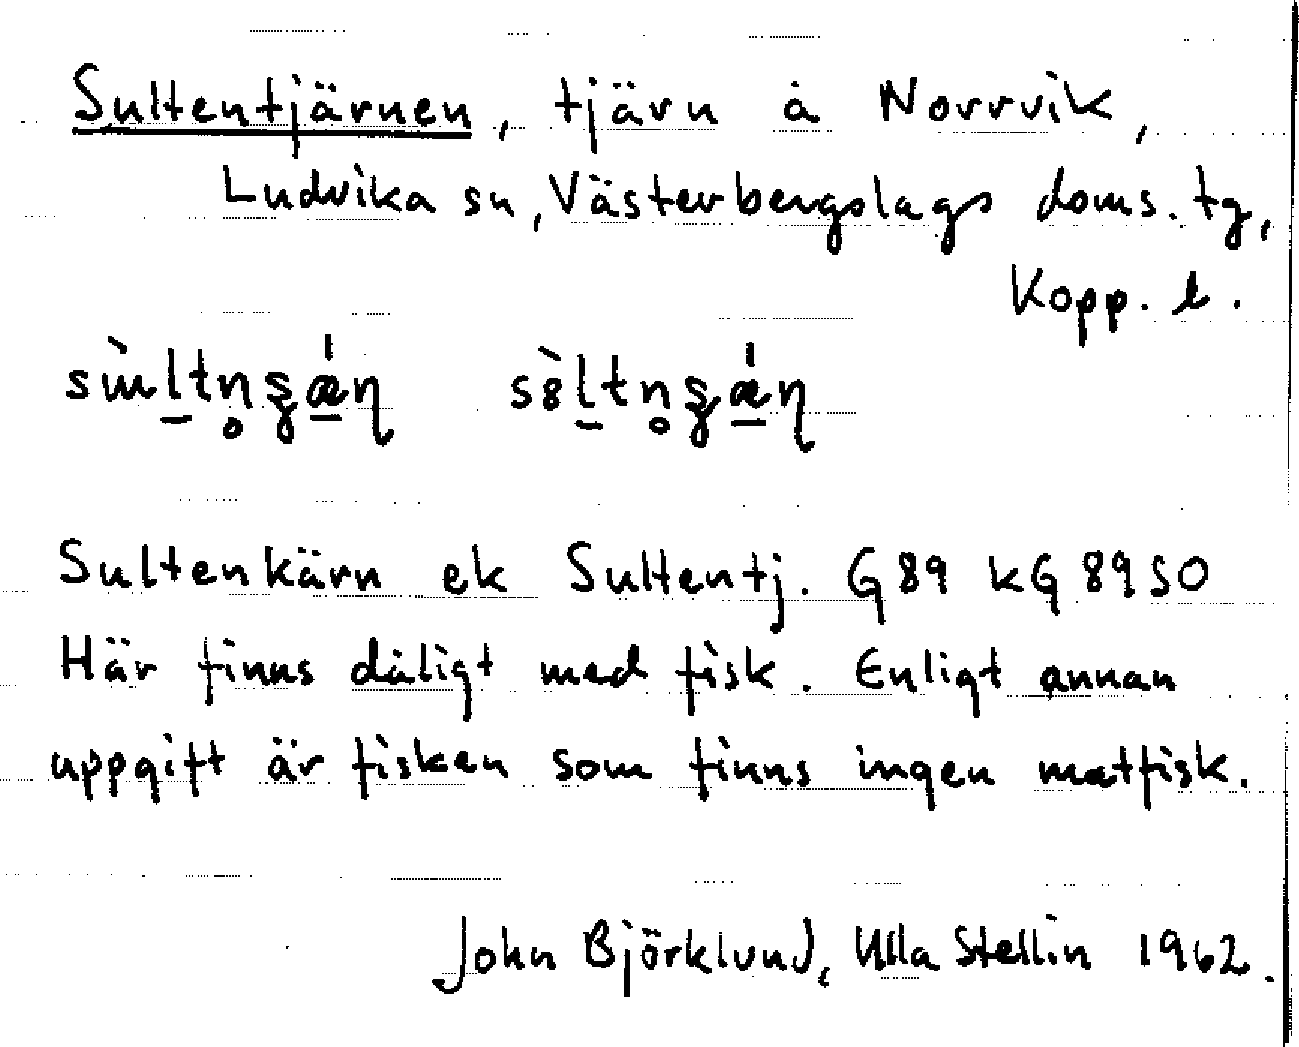 Sultentjärnen, tjärn å Norrvik,
Ludvika sn, Västerbergslags doms. tg,
Kopp. l.
Sultenkärn ek Sultentj. G89 kG 89 SO
Här finns dåligt med fisk. Enligt annan
uppgift är fisken som finns ingen matfisk.
John Björklund, Ulla Stellin 1962.